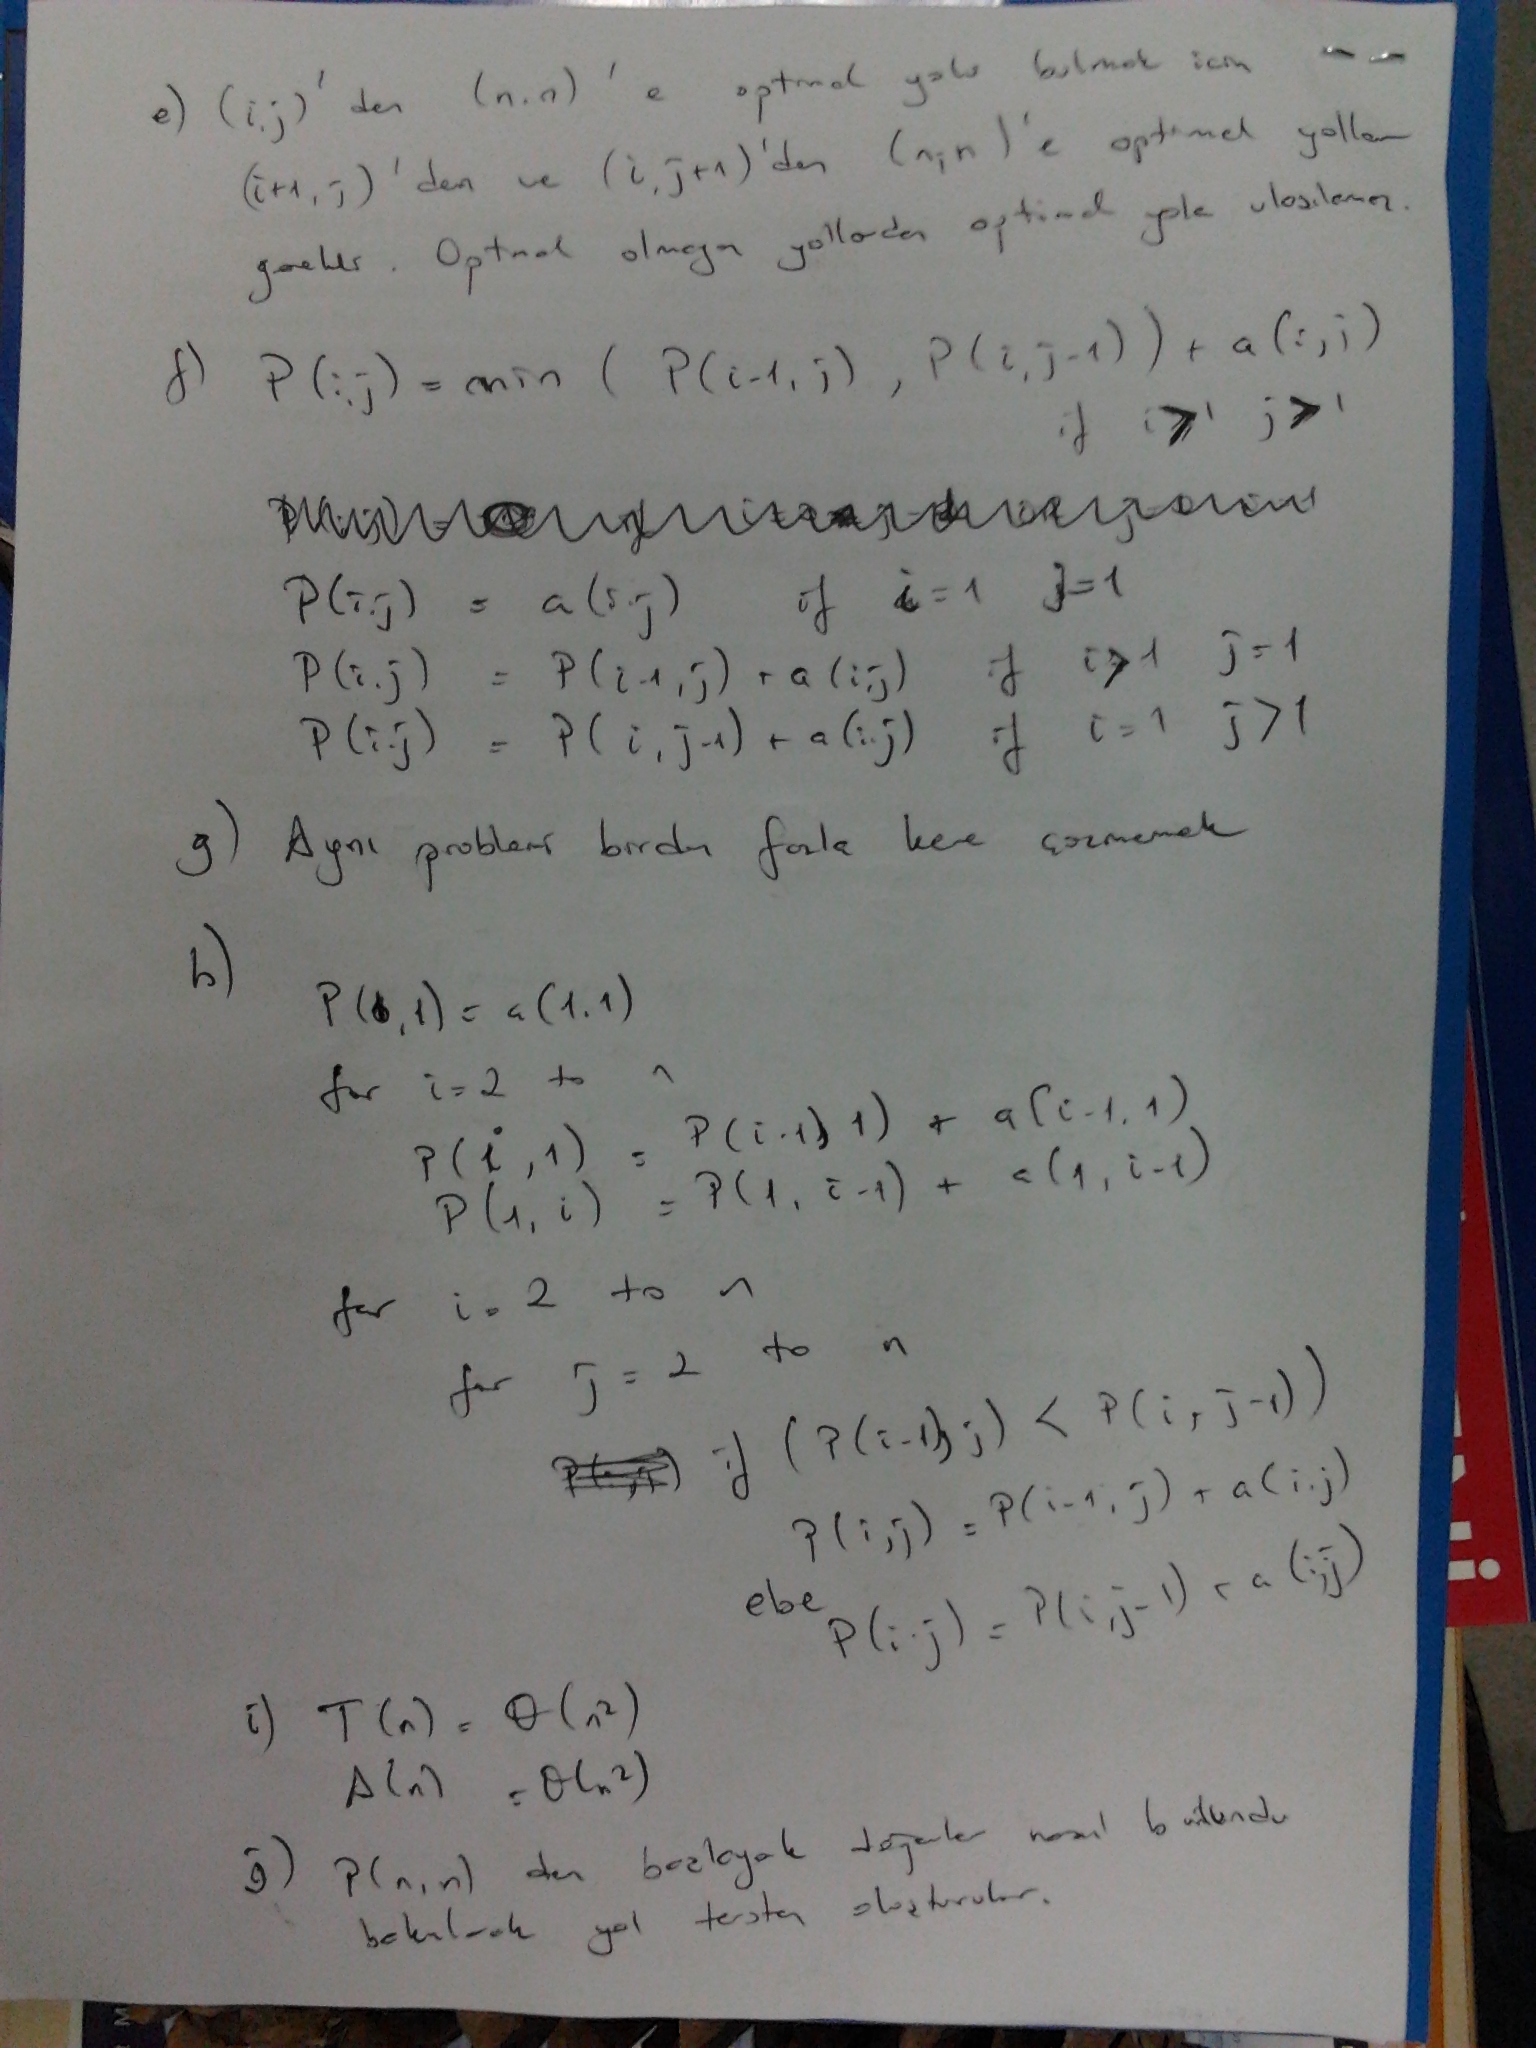 e) (i,j)' den (n,n)' e optimal yolu bulmak icin
(i+1, j)'den ve (i, j+1)'den (n,n)'e optimal yolları
gerekir. Optimal olmayan yollardan optimal yola ulaşılamaz.
f) P(i,j) = min ( P(i-1, j) , P(i, j-1) ) + a(i,j)
if i>1 j>1
P(i,j) = a(i,j) if i=1 j=1
P(i,j) = P(i-1, j) + a(i,j) if i>1 j=1
P(i,j) = P(i, j-1) + a(i,j) if i=1 j>1
g) Aynı problemi birden fazla kere çözmemek
h)
P(1,1) = a(1,1)
for i=2 to n
P(i,1) = P(i-1, 1) + a(i-1, 1)
P(1, i) = P(1, i-1) + a(1, i-1)
for i=2 to n
for j=2 to n
if (P(i-1, j) < P(i, j-1))
P(i,j) = P(i-1, j) + a(i,j)
else
P(i,j) = P(i, j-1) + a(i,j)
i) T(n) = Θ(n²)
A(n) = Θ(n²)
j) P(n,n) den başlayarak değerler nasıl bulundu
bakılarak yol tersten oluşturulur.